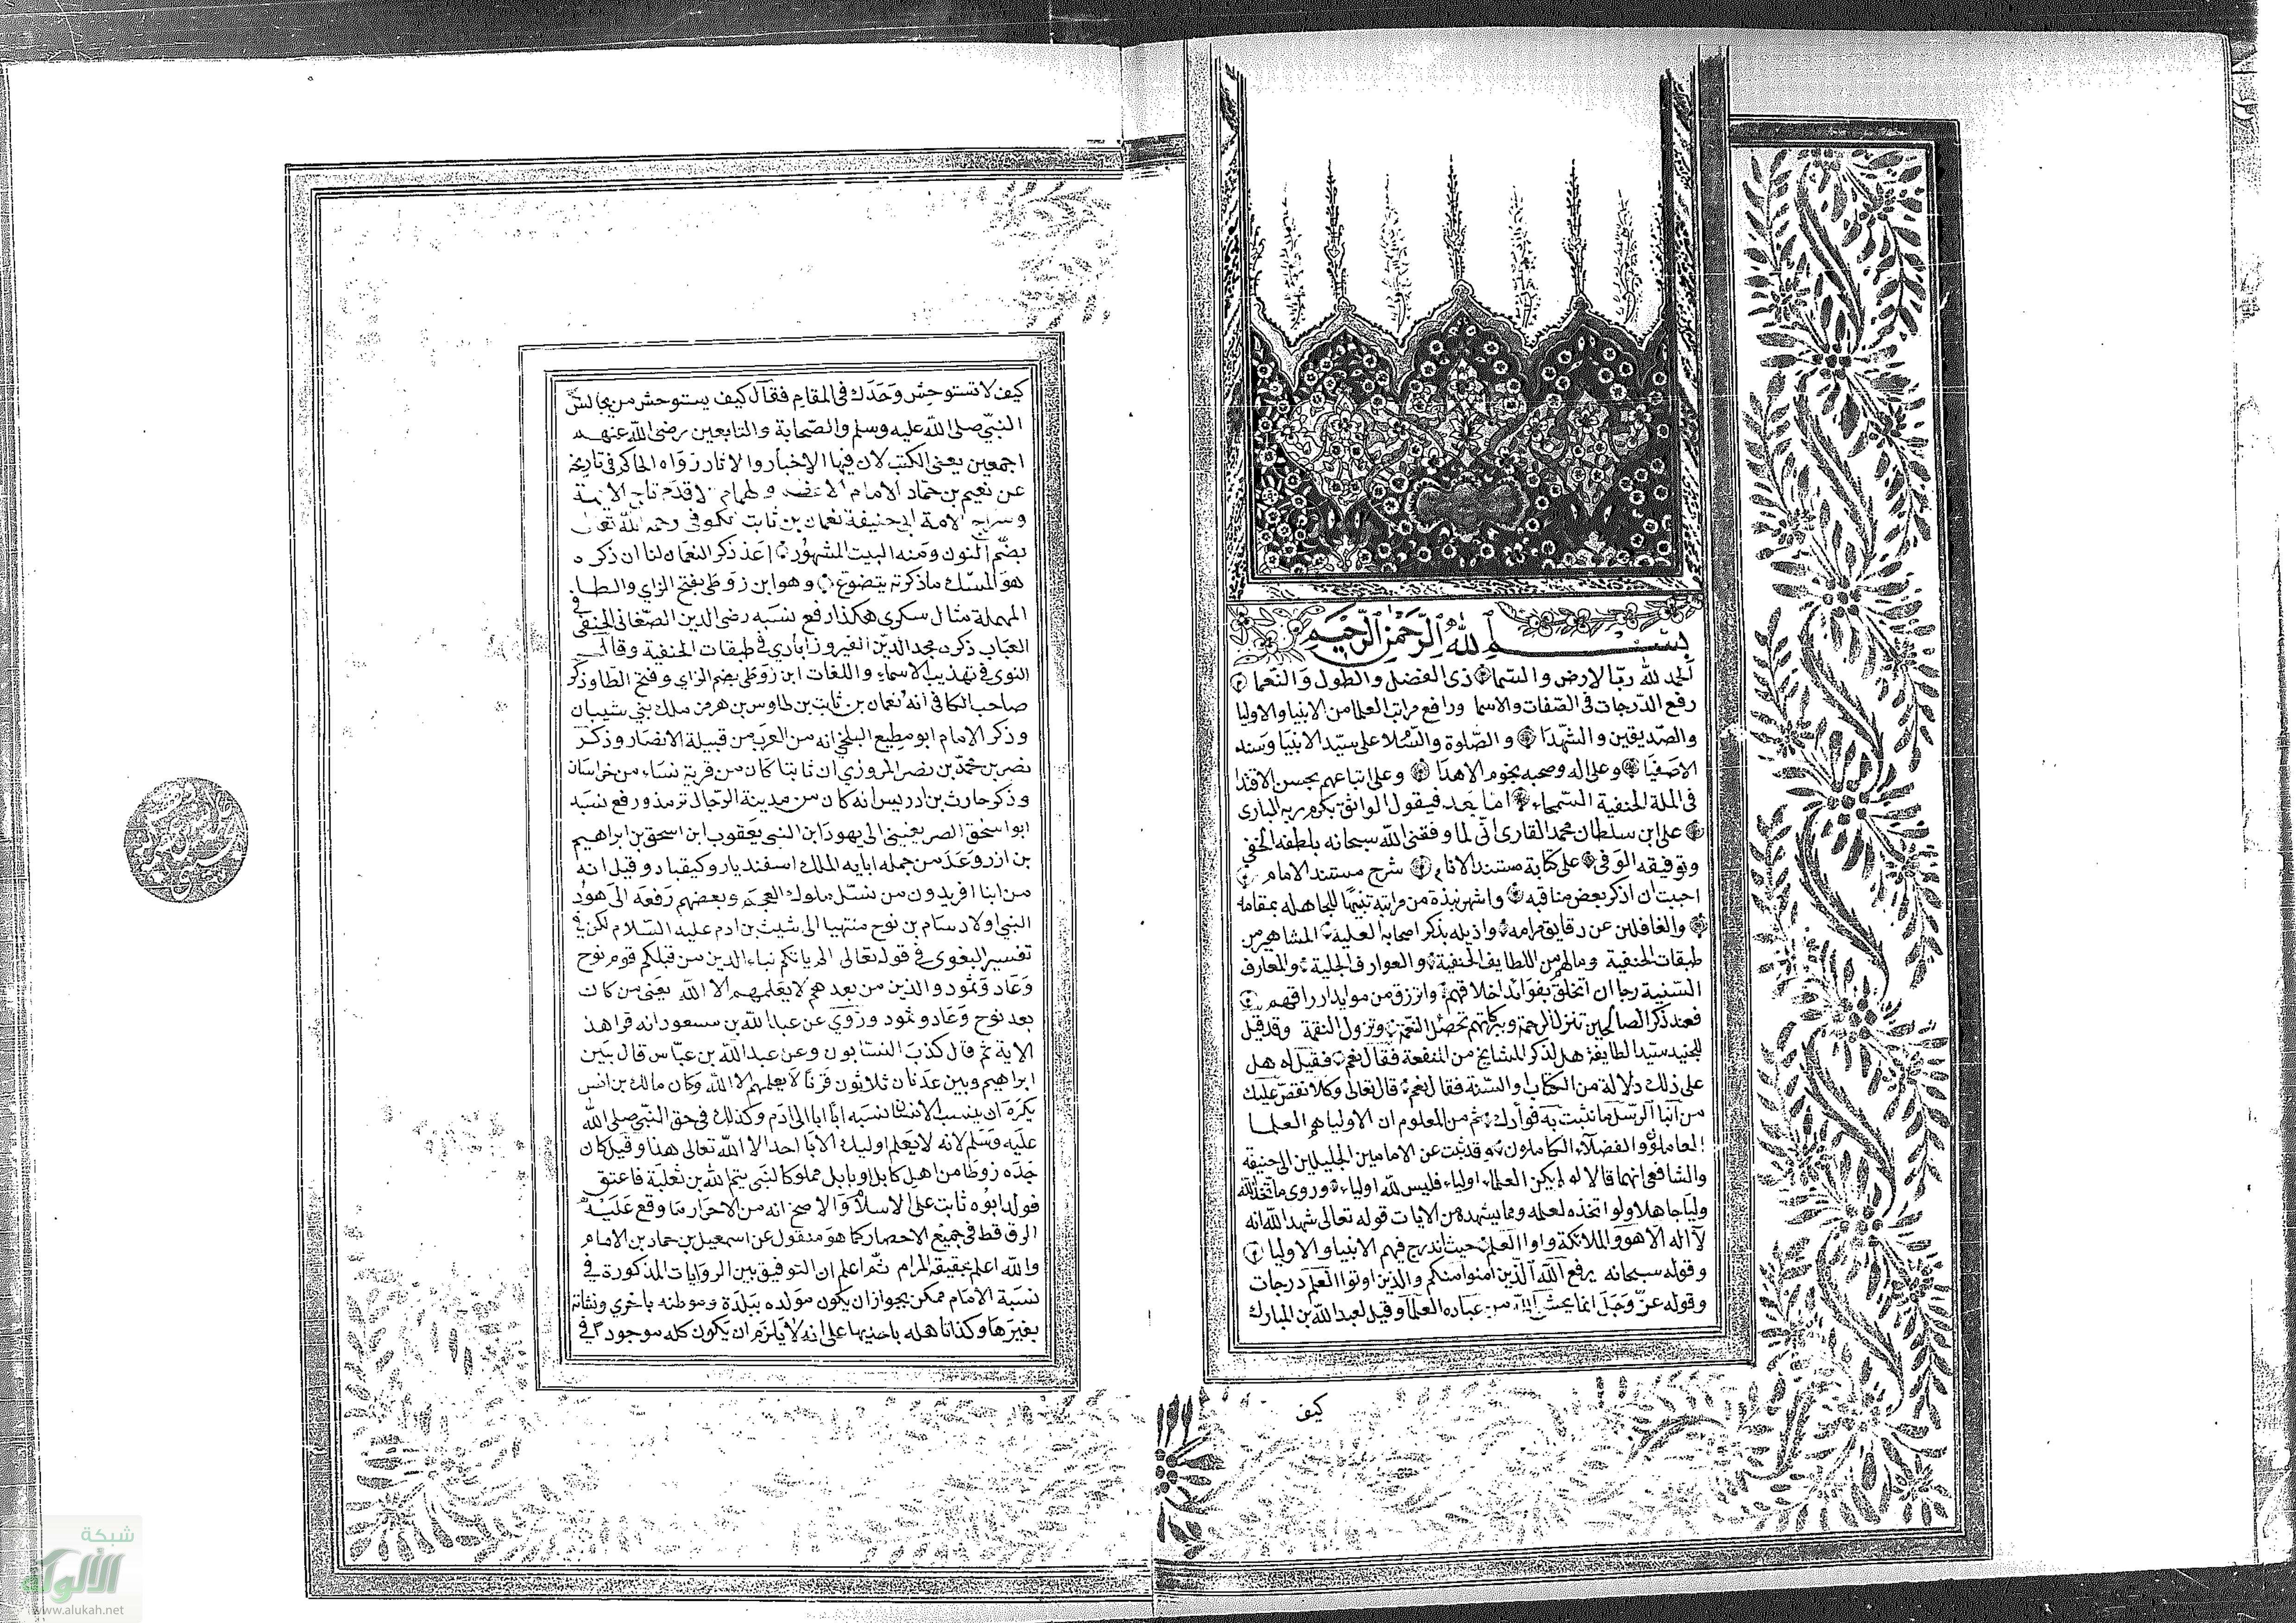 بسم الله الرحمن الرحيم
الحمد لله رب الارض والسما ذى الفضل والطول والنعما
رفع الدرجات فى الصفات والاسما ورافع مراتب العلما من الانبيا والاوليا
والصديقين والشهدا والصلوة والسلا على سيد الانبيا وسند
الاصفيا وعلى اله وصحبه نجوم الاهدا وعلى اتباعهم بحسن الاقتدا
فى الملة الحنفية السمحاء اما بعد فيقول الواثق بكرم ربه البارى
على ابن سلطان محمد القارى انى لما وفقنى الله سبحانه بلطفه الخفى
وتوفيقه الوفى على كتابة مستند الانام شرح مستند الامام
احببت ان اذكر بعض مناقبه واشهر نبذة من مراتبه تنبيها للجاهل بمقامه
والغافلين عن دقايق مرامه واذيله بذكر اصحابه العلية المشاهير من
طبقات الحنفية ومالهم من اللطايف الحنفية والعوارف الجلية والمعارف
السنية رجا ان اتخلق بفوائد اخلاقهم واترزق من موايد ارزاقهم
فعند ذكر الصالحين تنزل الرحمة وببركاتهم تحصل النعمة وتزول النقمة وقد قيل
للجنيد سيد الطايفة هل لذكر المشايخ من المنفعة فقال نعم فقيل له هل
على ذلك دلالة من الكتاب والسنة فقال نعم قال تعالى وكلا نقص عليك
من انبا الرسل ما نثبت به فوادك ثم من المعلوم ان الاولياهم العلما
العاملون والفضلاء الكاملون وقد ثبت عن الامامين الجليلين ابى حنيفة
والشافعى انهما قالا لو لم يكن العلماء اولياء فليس لله اولياء وروى ما اتخذ الله
وليا جاهلا ولو اتخذه لعلمه ومما يشهد من الايات قوله تعالى شهد الله انه
لا اله الا هو والملائكة واولوا العلم حيث اندرج فيهم الانبيا والاوليا
وقوله سبحانه يرفع الله الذين امنوا منكم والذين اوتوا العلم درجات
وقوله عز وجل انما يخشى الله من عباده العلما وقيل لعبد الله بن المبارك
كيف
كيف لا تستوحش وحدك فى المقام فقال كيف يستوحش من يجالس
النبى صلى الله عليه وسلم والصحابة والتابعين رضى الله عنهم
اجمعين يعنى الكتب لان فيها الاخبار والاثار رواه الحاكم فى تاريخه
عن نعيم بن حماد الامام الاعظم والهمام الاقدم تاج الايمة
وسراج الامة ابى حنيفة نعمان بن ثابت الكوفى رحمه الله تعالى
بضم النون ومنه البيت المشهور اعد ذكر النعمان لنا ان ذكره
هو المسك ما ذكرته يتضوع وهو ابن زوطى بفتح الزاي والطا
المهملة مثال سكرى هكذا رفع نسبه رضى الدين الصغانى الحنفى فى
العباب ذكره مجد الدين الفيروزابادي فى طبقات الحنفية وقال
النوى فى تهذيب الاسماء واللغات ابن زوطى بضم الزاي وفتح الطا وذكر
صاحب الكافى انه نعمان بن ثابت بن طاوس بن هرمز ملك بنى شيبان
وذكر الامام ابو مطيع البلخى انه من العرب من قبيلة الانصار وذكر
نصر بن محمد بن نصر المروزي ان ثابتا كان من قرية نساء من خراسان
وذكر حارث بن ادريس انه كان من مدينة الرجال ترمذ ورفع نسبه
ابو اسحق الصريفينى الى يهودا ابن النبى يعقوب ابن اسحق بن ابراهيم
بن ازر وعد من جمله ابايه الملك اسفنديار وكيقباد وقيل انه
من ابنا افريدون من نسل ملوك العجم وبعضهم رفعه الى هود
النبى اولاد سام بن نوح منتهيا الى شيث بن ادم عليه السلام لكن فى
تفسير البغوى فى قوله تعالى الم ياتكم نباء الذين من قبلكم قوم نوح
وعاد وثمود والذين من بعدهم لا يعلمهم الا الله يعنى من كان
بعد نوح وعاد وثمود وروي عن عبد الله بن مسعود انه قرا هذ
الاية ثم قال كذب النسابون وعن عبد الله بن عباس قال بين
ابراهيم وبين عدنان ثلاثون قرنا لا يعلمهم الا الله وكان مالك بن انس
يكره ان ينسب الانسان نسبه ابا ابا الى ادم وكذلك فى حق النبى صلى الله
عليه وسلم لانه لا يعلم اوليك الابا احد الا الله تعالى هذا وقيل كان
جده زوطا من اهل كابل او بابل مملوكا لبنى تيم الله بن ثعلبة فاعتق
فولد ابوه ثابت على الاسلا والاصح انه من الاحرار ما وقع عليه
الرق قط فى جميع الاحصار كما هو منقول عن اسمعيل بن حماد بن الامام
والله اعلم بحقيقة المرام ثم اعلم ان التوفيق بين الروايات المذكورة فى
نسبة الامام ممكن بجواز ان يكون مولده ببلدة وموطنه باخري ونشاته
بغيرها وكذا تاهله باحديها على انه لا يلزم ان يكون كله موجودا فى
شبكة
الألوكة
www.alukah.net